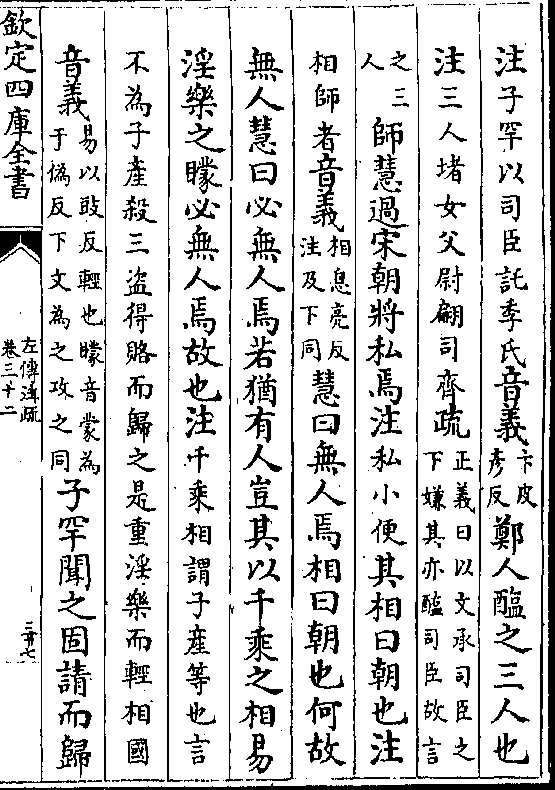 注子罕以司臣託季氏音義卞皮彥反鄭人醢之三人也
注三人堵女父尉翩司齊疏正義曰以文承司臣之下嫌其亦醢司臣故言
之三人師慧過宋朝將私焉注私小便其相曰朝也注
相師者音義相息亮反注及下同慧曰無人焉相曰朝也何故
無人慧曰必無人焉若猶有人豈其以千乘之相易
淫樂之矇必無人焉故也注千乘相謂子產等也言
不為子產殺三盜得賂而歸之是重淫樂而輕相國
音義易以豉反輕也矇音蒙為于偽反下文為之攻之同子罕聞之固請而歸
欽定四庫全書
左傳注疏
卷三十二